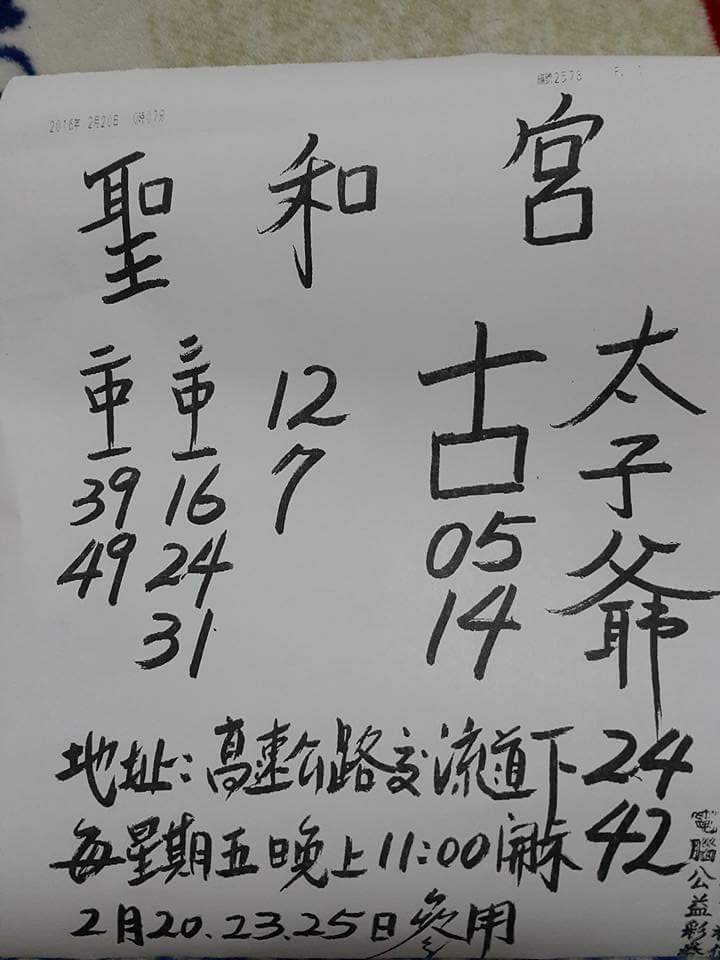 2016年 2月20日 0時07分
編號2578 P.
聖和宮
太子爺
古
05
14
12
7
16
24
31
39
49
地址:高速公路交流道下 24
每星期五晚上11:00開示 42
2月20.23.25日參用
電腦公益彩券